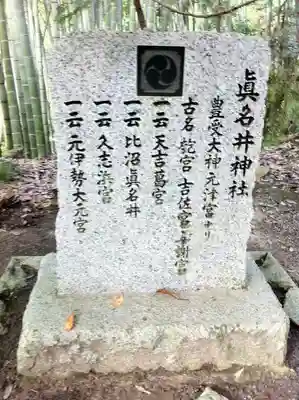 眞名井神社
豊受大神元津宮ナリ
古名 乾宮 吉佐宮 與謝宮
一云 天吉葛宮
一云 比沼眞名井
一云 久志浜宮
一云 元伊勢大元宮